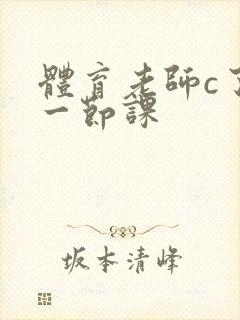 體育老師c了
一節課
坂本清峰